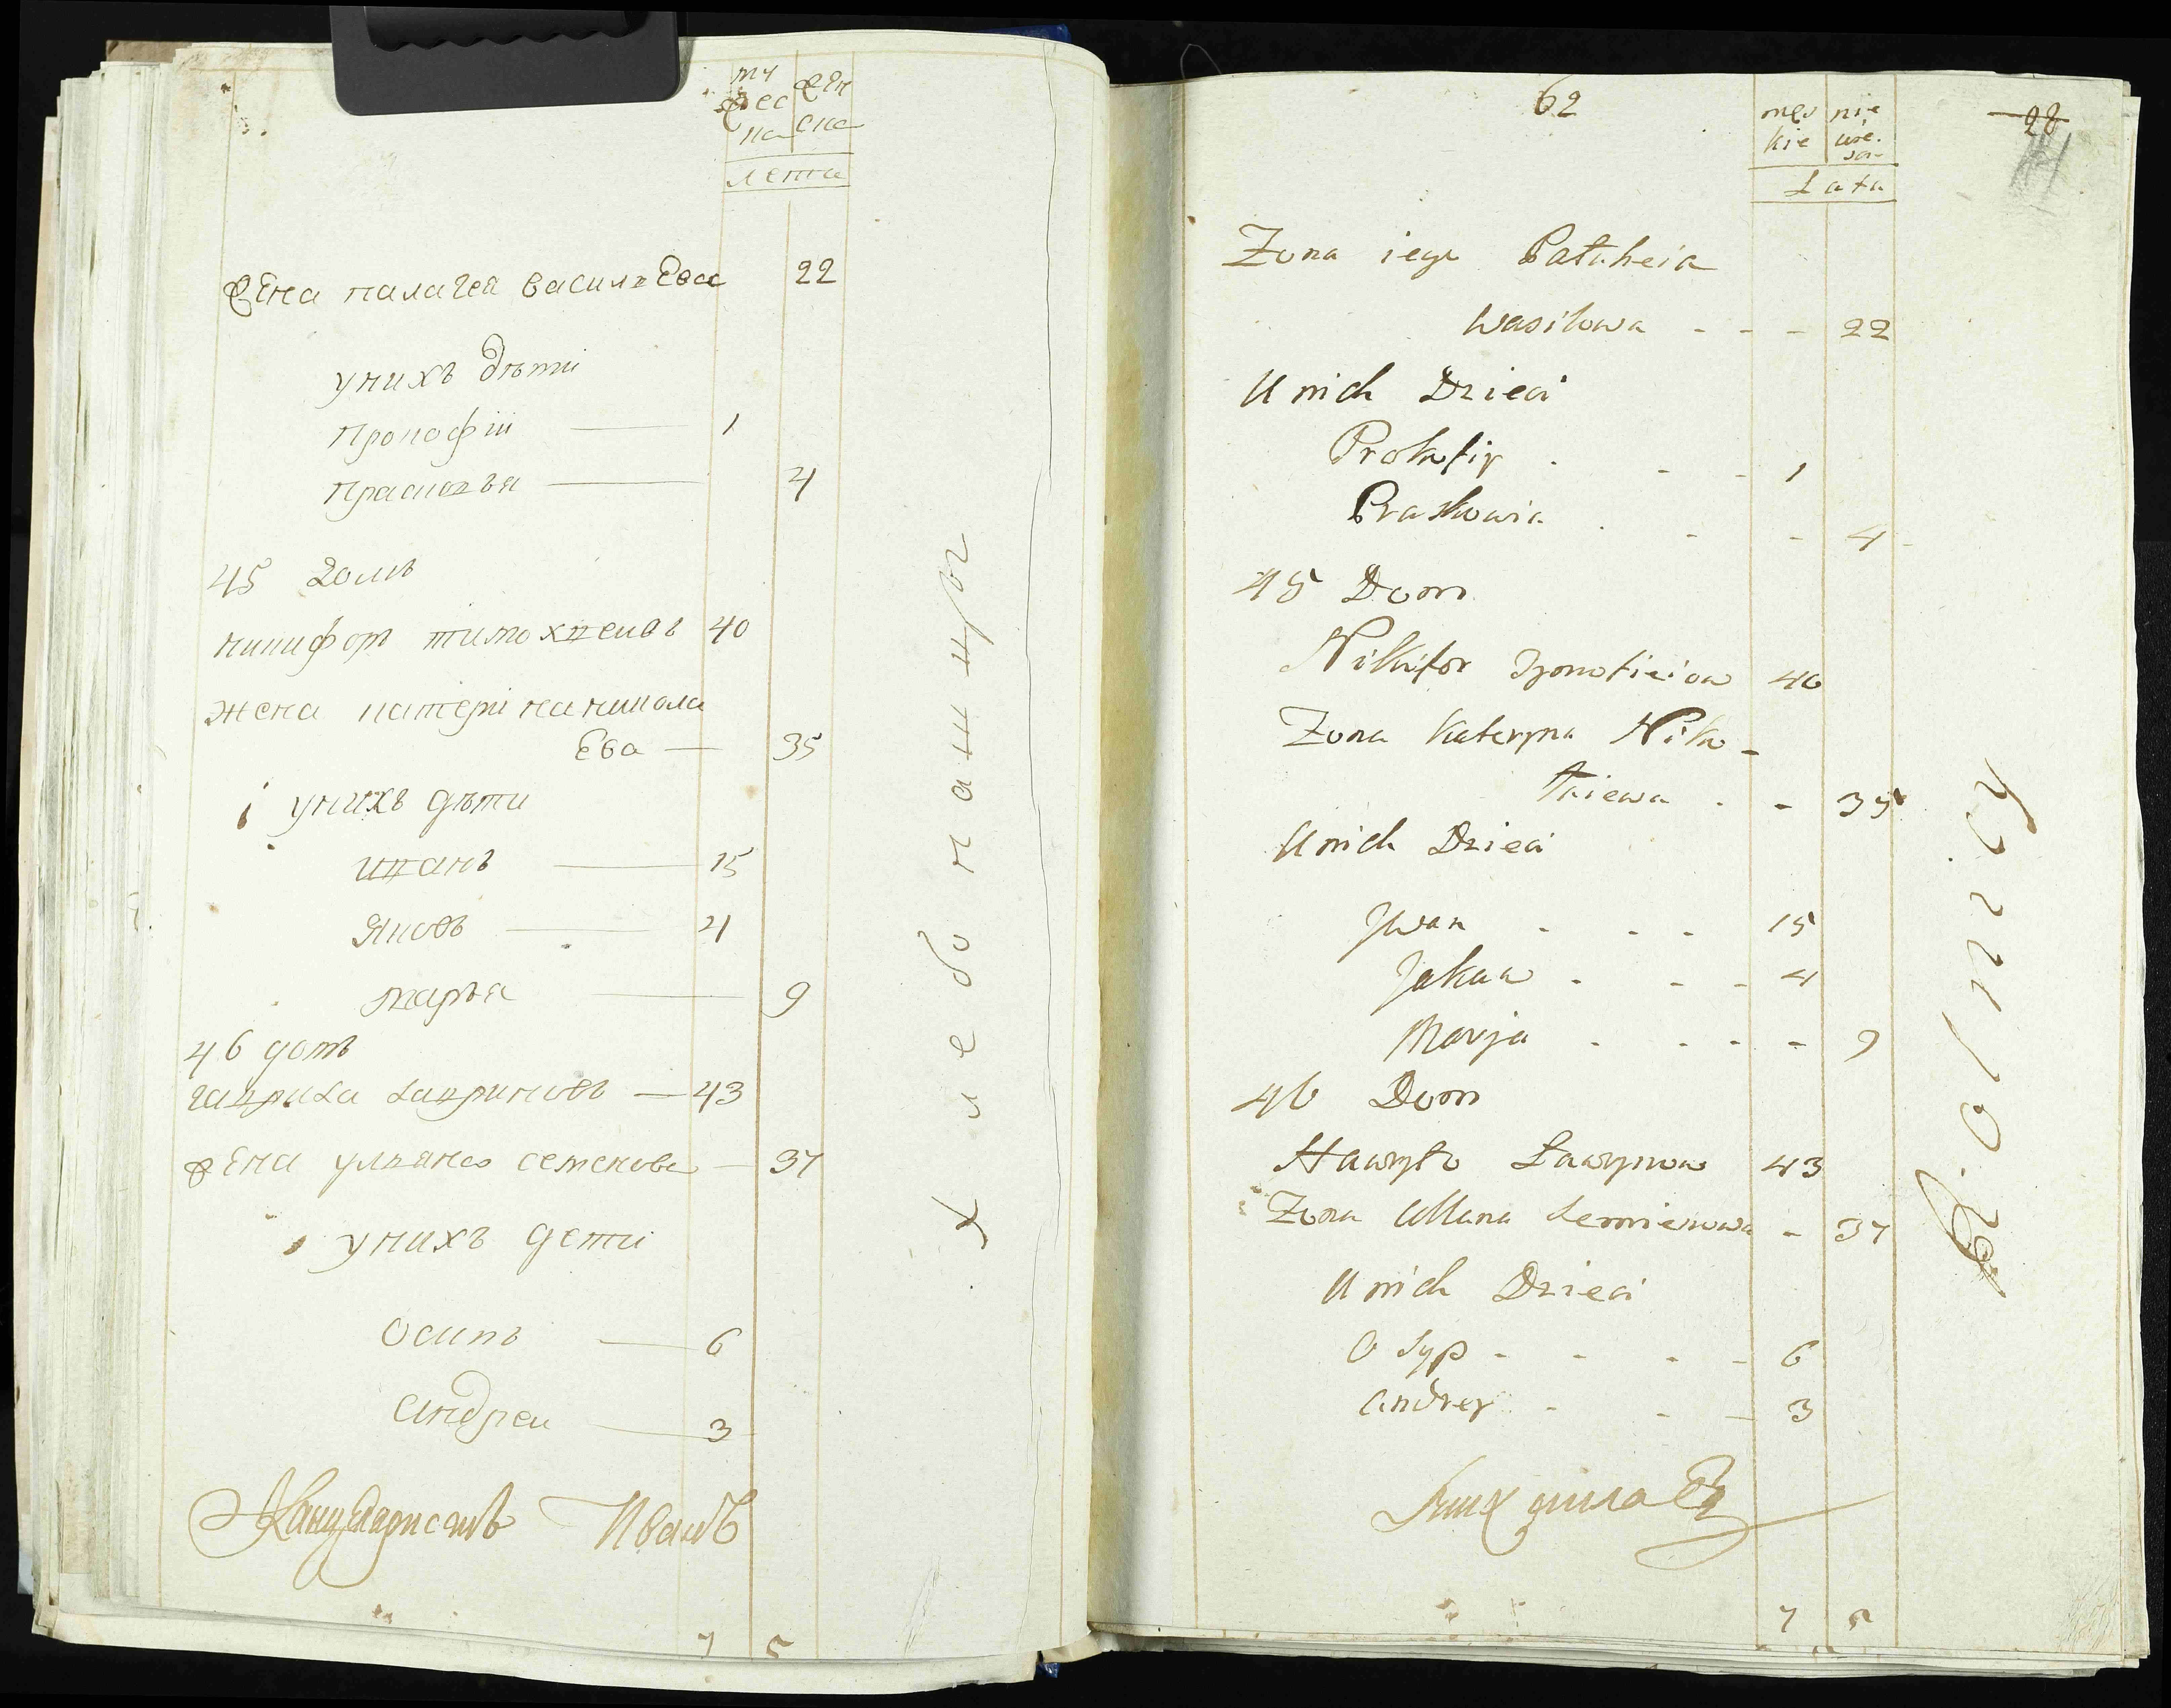 му
жес
ка
жен
ска
лета
жена палагея василъева 22
унихъ дѣти
Прокофіи 1
Прасковъя 4
45 домъ
никифоръ тимохѳеивъ 40
жена катеріна никола
Ева 35
і унихъ дѣти
иванъ 15
Яковъ 4
маръя 9
46 домъ
гаврила лавриновъ 43
жена улъяна семенова 37
унихъ дети
Осипъ 6
андреи 3
Иванъ
7 5
Хлебопашцы
62
męs
kie
nie
wie.
Lata
28
Zona iego Pałaheia
Wasilowa - - - 22
U nich Dzieci
Prokofiy - - - 1
Praskowia - - - 4
45 Dom
Nikifor 40
Zona Kateryna Niko-
łaiewa - - 35
U nich Dzieci
Jwan - - - 15
Jakow - - - 4
Marja - - - - 9
46 Dom
Hawryło Ławrynow 43
Zona Ullana Semienowa - 37
U nich Dzieci
Osyp - - - - 6
Andrey - - - 3
7 5
Rolnicy